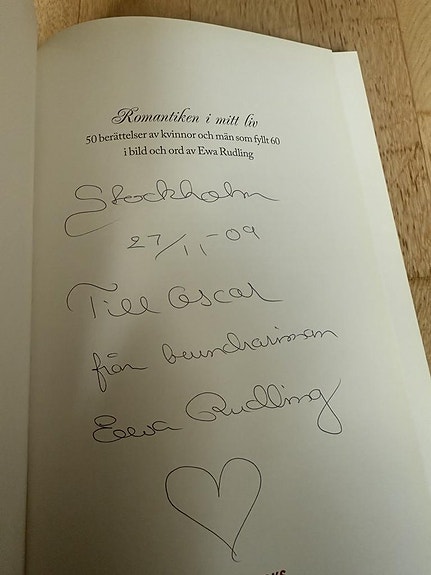 Romantiken i mitt liv
50 berättelser av kvinnor och män som fyllt 60
i bild och ord av Ewa Rudling
Stockholm
27/11-09
Till Oscar
från beundrarinnan
Ewa Rudling